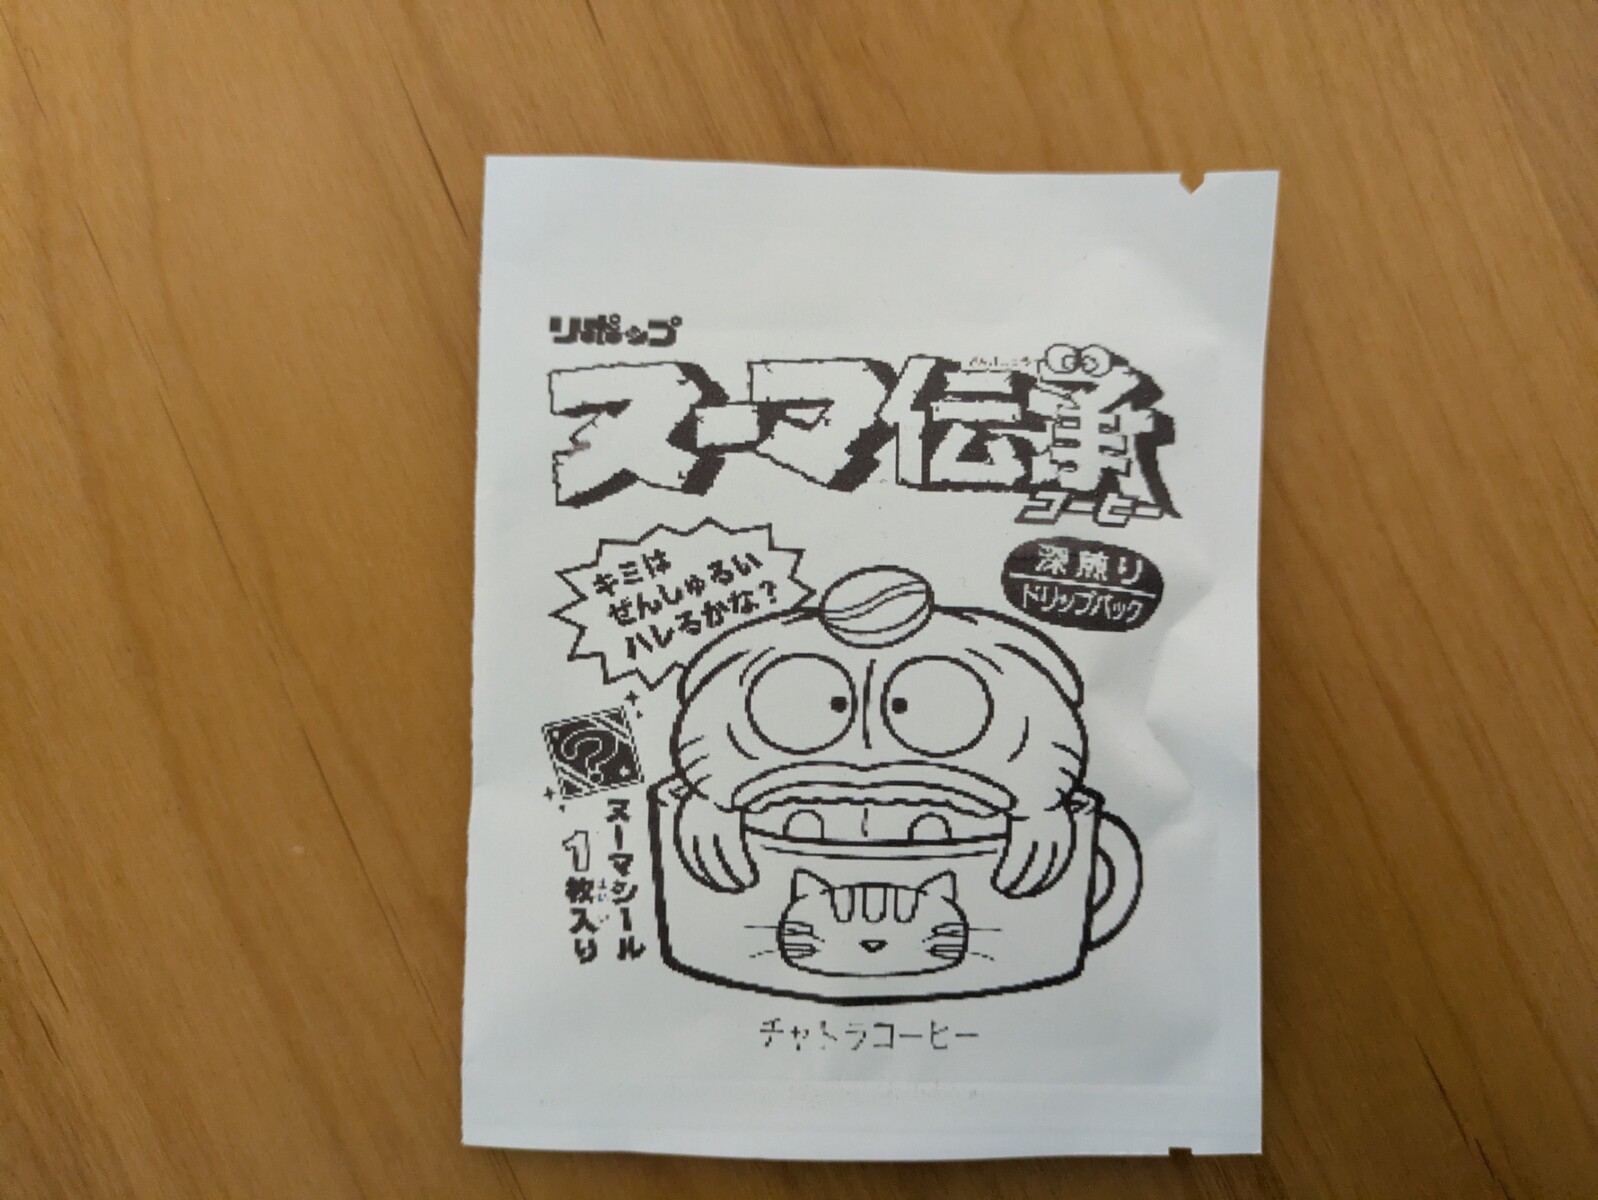 リポップ
ヌーマ伝承
コーヒー
深煎り
ドリップパック
キミは
ぜんしゅるい
ハレるかな？
?
ヌーマシール
1枚入り
まい い
チャトラコーヒー